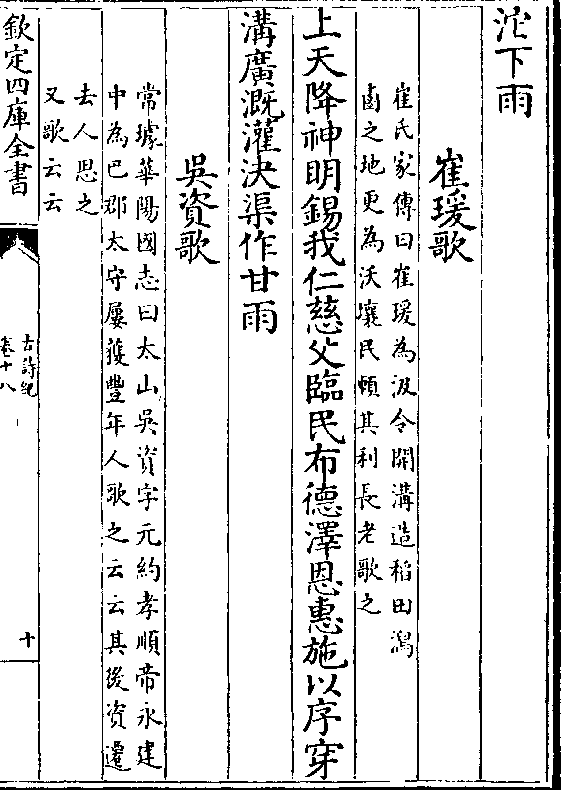 沱下雨
崔瑗歌
崔氏家傳曰崔瑗為汲令開溝造稻田瀉
鹵之地更為沃壤民賴其利長老歌之
上天降神明錫我仁慈父臨民布德澤恩惠施以序穿
溝廣溉灌決渠作甘雨
吳資歌
常璩華陽國志曰太山吳資字元約孝順帝永建
中為巴郡太守屢獲豐年人歌之云云其後資遷
去人思之
又歌云云
欽定四庫全書
古詩紀
卷十八
十